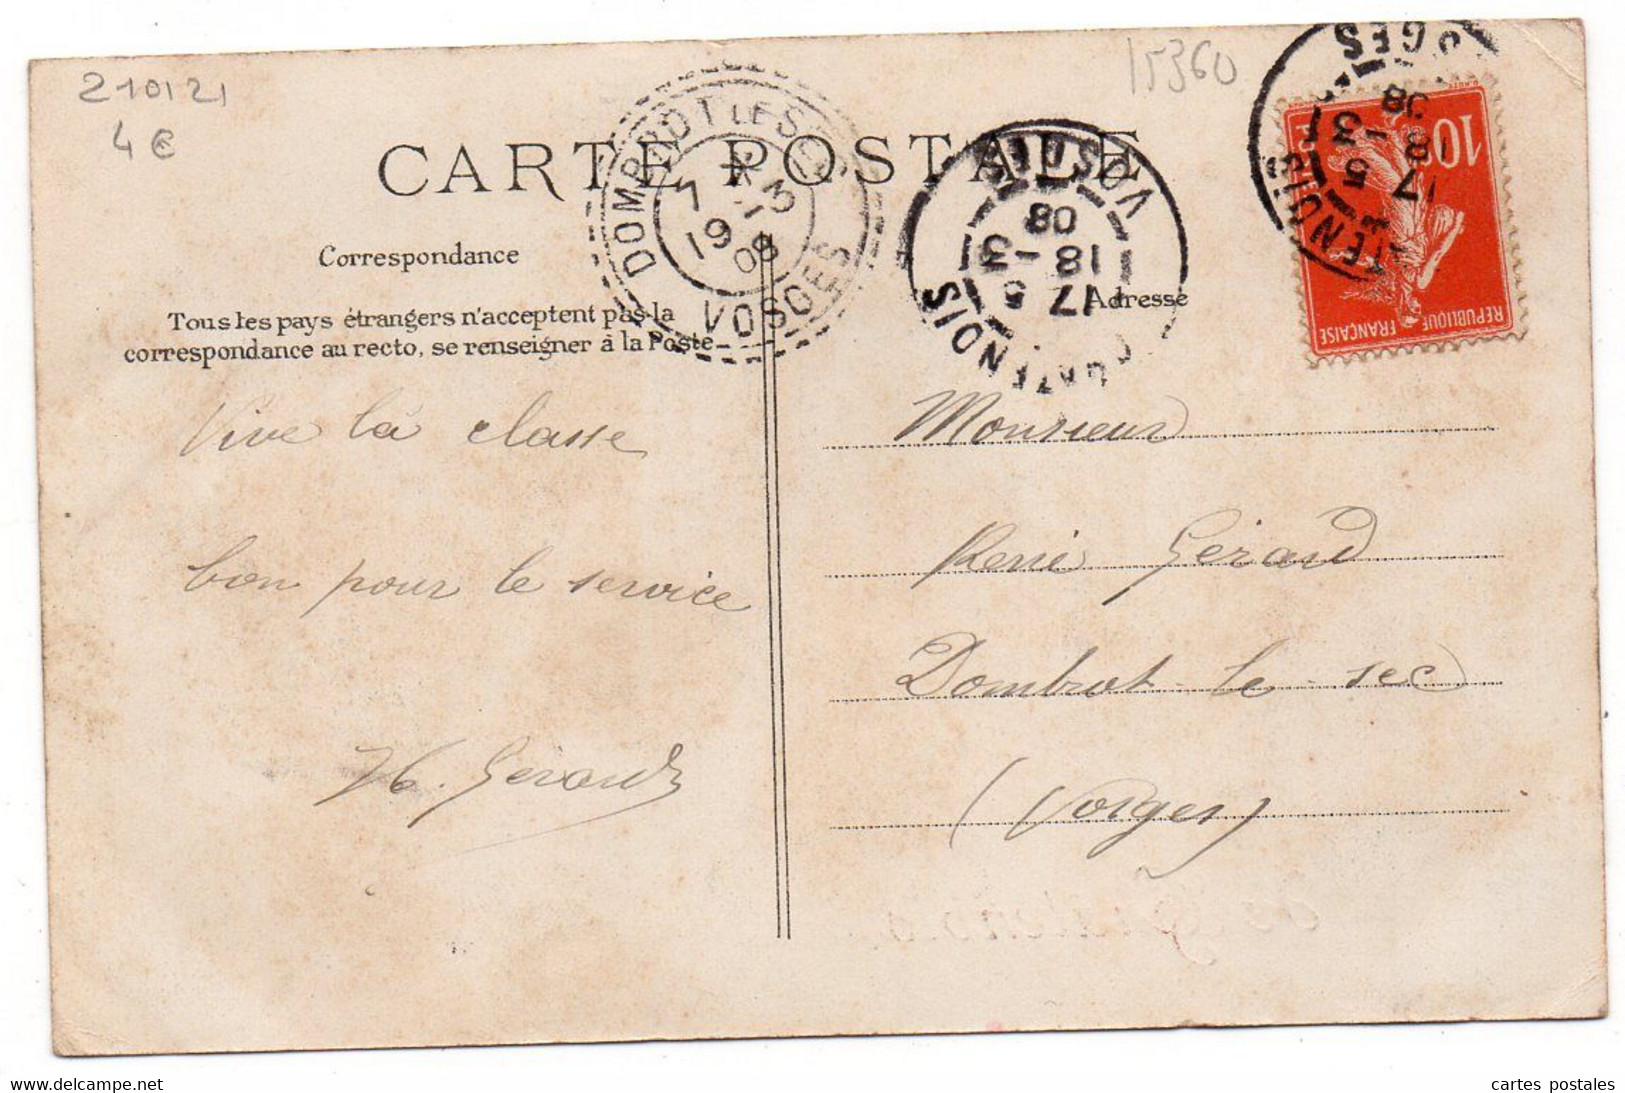 210121
4€
15360
CARTE POSTALE
DOMBROT LE SEC
7 * 3
19 -3
08
VOSGES
CHATENOIS
17 5
18 -3
08
VOSGES
CHATENOIS
17 5
18 -3
08
VOSGES
10c
POSTES
REPUBLIQUE FRANÇAISE
Correspondance
Tous les pays étrangers n'acceptent pas la
correspondance au recto, se renseigner à la Poste
Adresse
Vive la classe
bon pour le service
H. Gérard
Monsieur
René Gérard
Dombrot-le-sec
(Vosges)
cartes postales